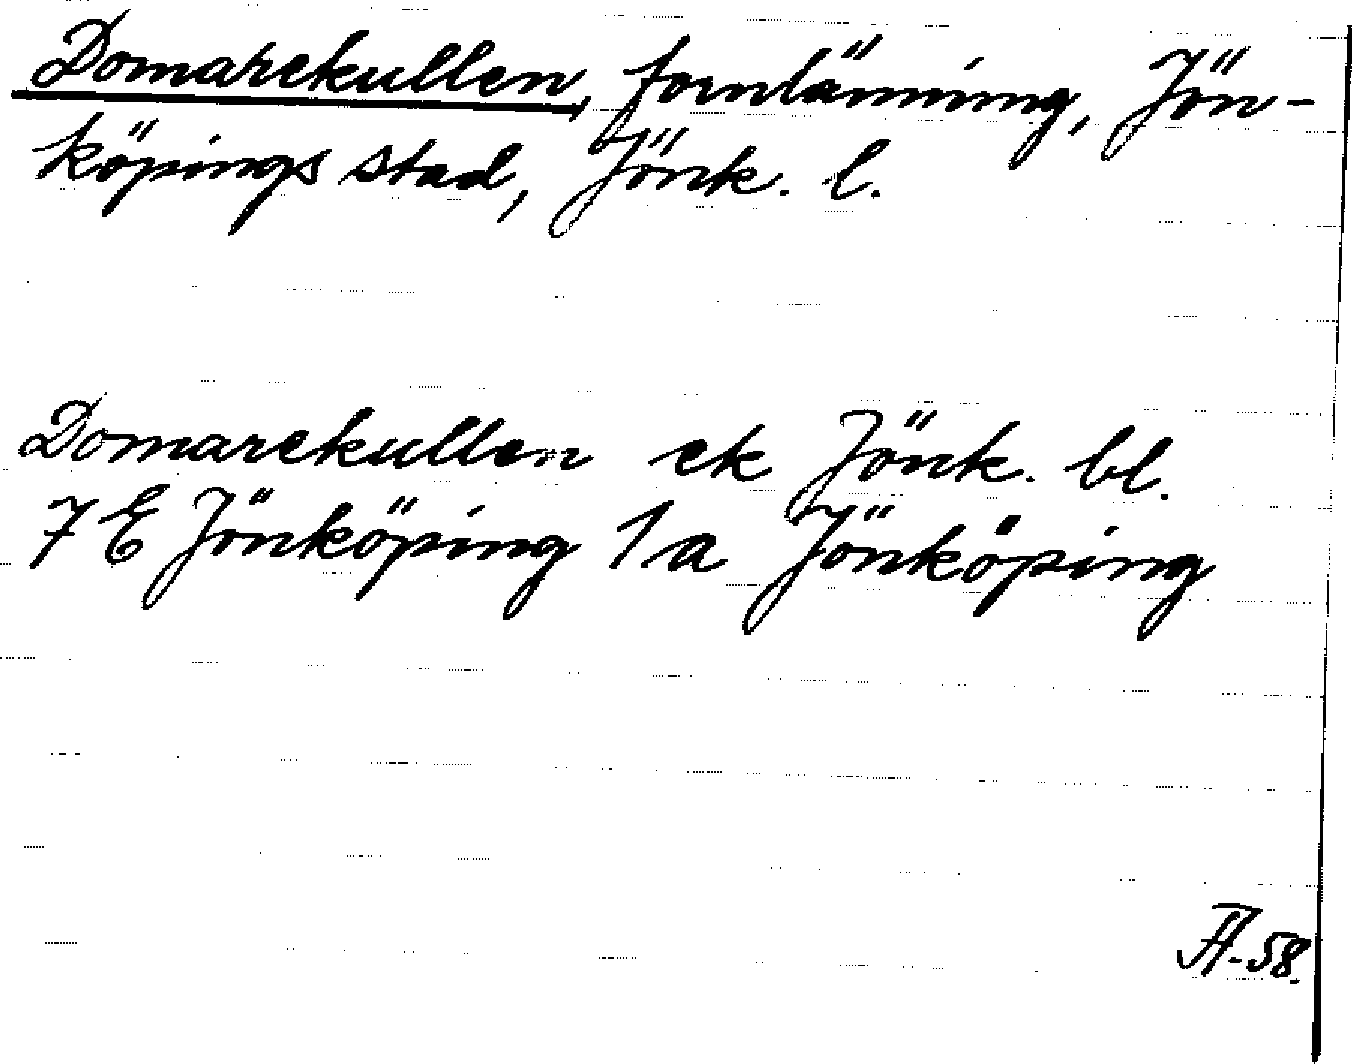 Domarekullen, fornlämning, Jön-
köpings stad, Jönk. l.
Domarekullen ek Jönk. bl.
7 E Jönköping 1 a Jönköping
58.